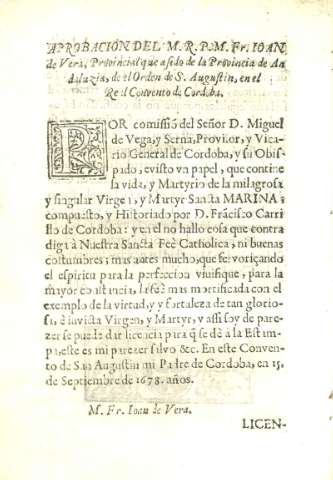 APROBACIÓN DEL M.R.P.M. Fr. IOAN
de Vera, Provincial que a sido de la Provincia de An
daluzia, de el Orden de S. Augustin, en el
Real Convento de Cordoba.
POR comissiõ del Señor D. Miguel
de Vega, y Serna, Provisor, y Vica-
rio General de Cordoba, y su Obis-
pado, e visto vn papel, que contine
la vida, y Martyrio de la milagrosa
y singular Virgen, y Martyr Sancta MARINA;
compuesto, y Historiado por D. Frãcisco Carri
llo de Cordoba: y en el no hallo cosa que contra
diga à Nuestra Sancta Feè Catholica, ni buenas
costumbres; mas antes mucho, que fervoriçando
el espiritu para la perfeccion viuifique, para la
mayor constancia, la feè mas mortificada con el
exemplo de la virtud, y fortaleza de tan glorio-
sa, è invicta Virgen, y Martyr, y assi soy de pare-
zer se puede dar licencia para q̃ se dè à la Estam
pa, este es mi parezer salvo &c. En este Conven-
to de San Augustin mi Padre de Cordoba, en 15.
de Septiembre de 1678. años.
M. Fr. Ioan de Vera.
LICEN-